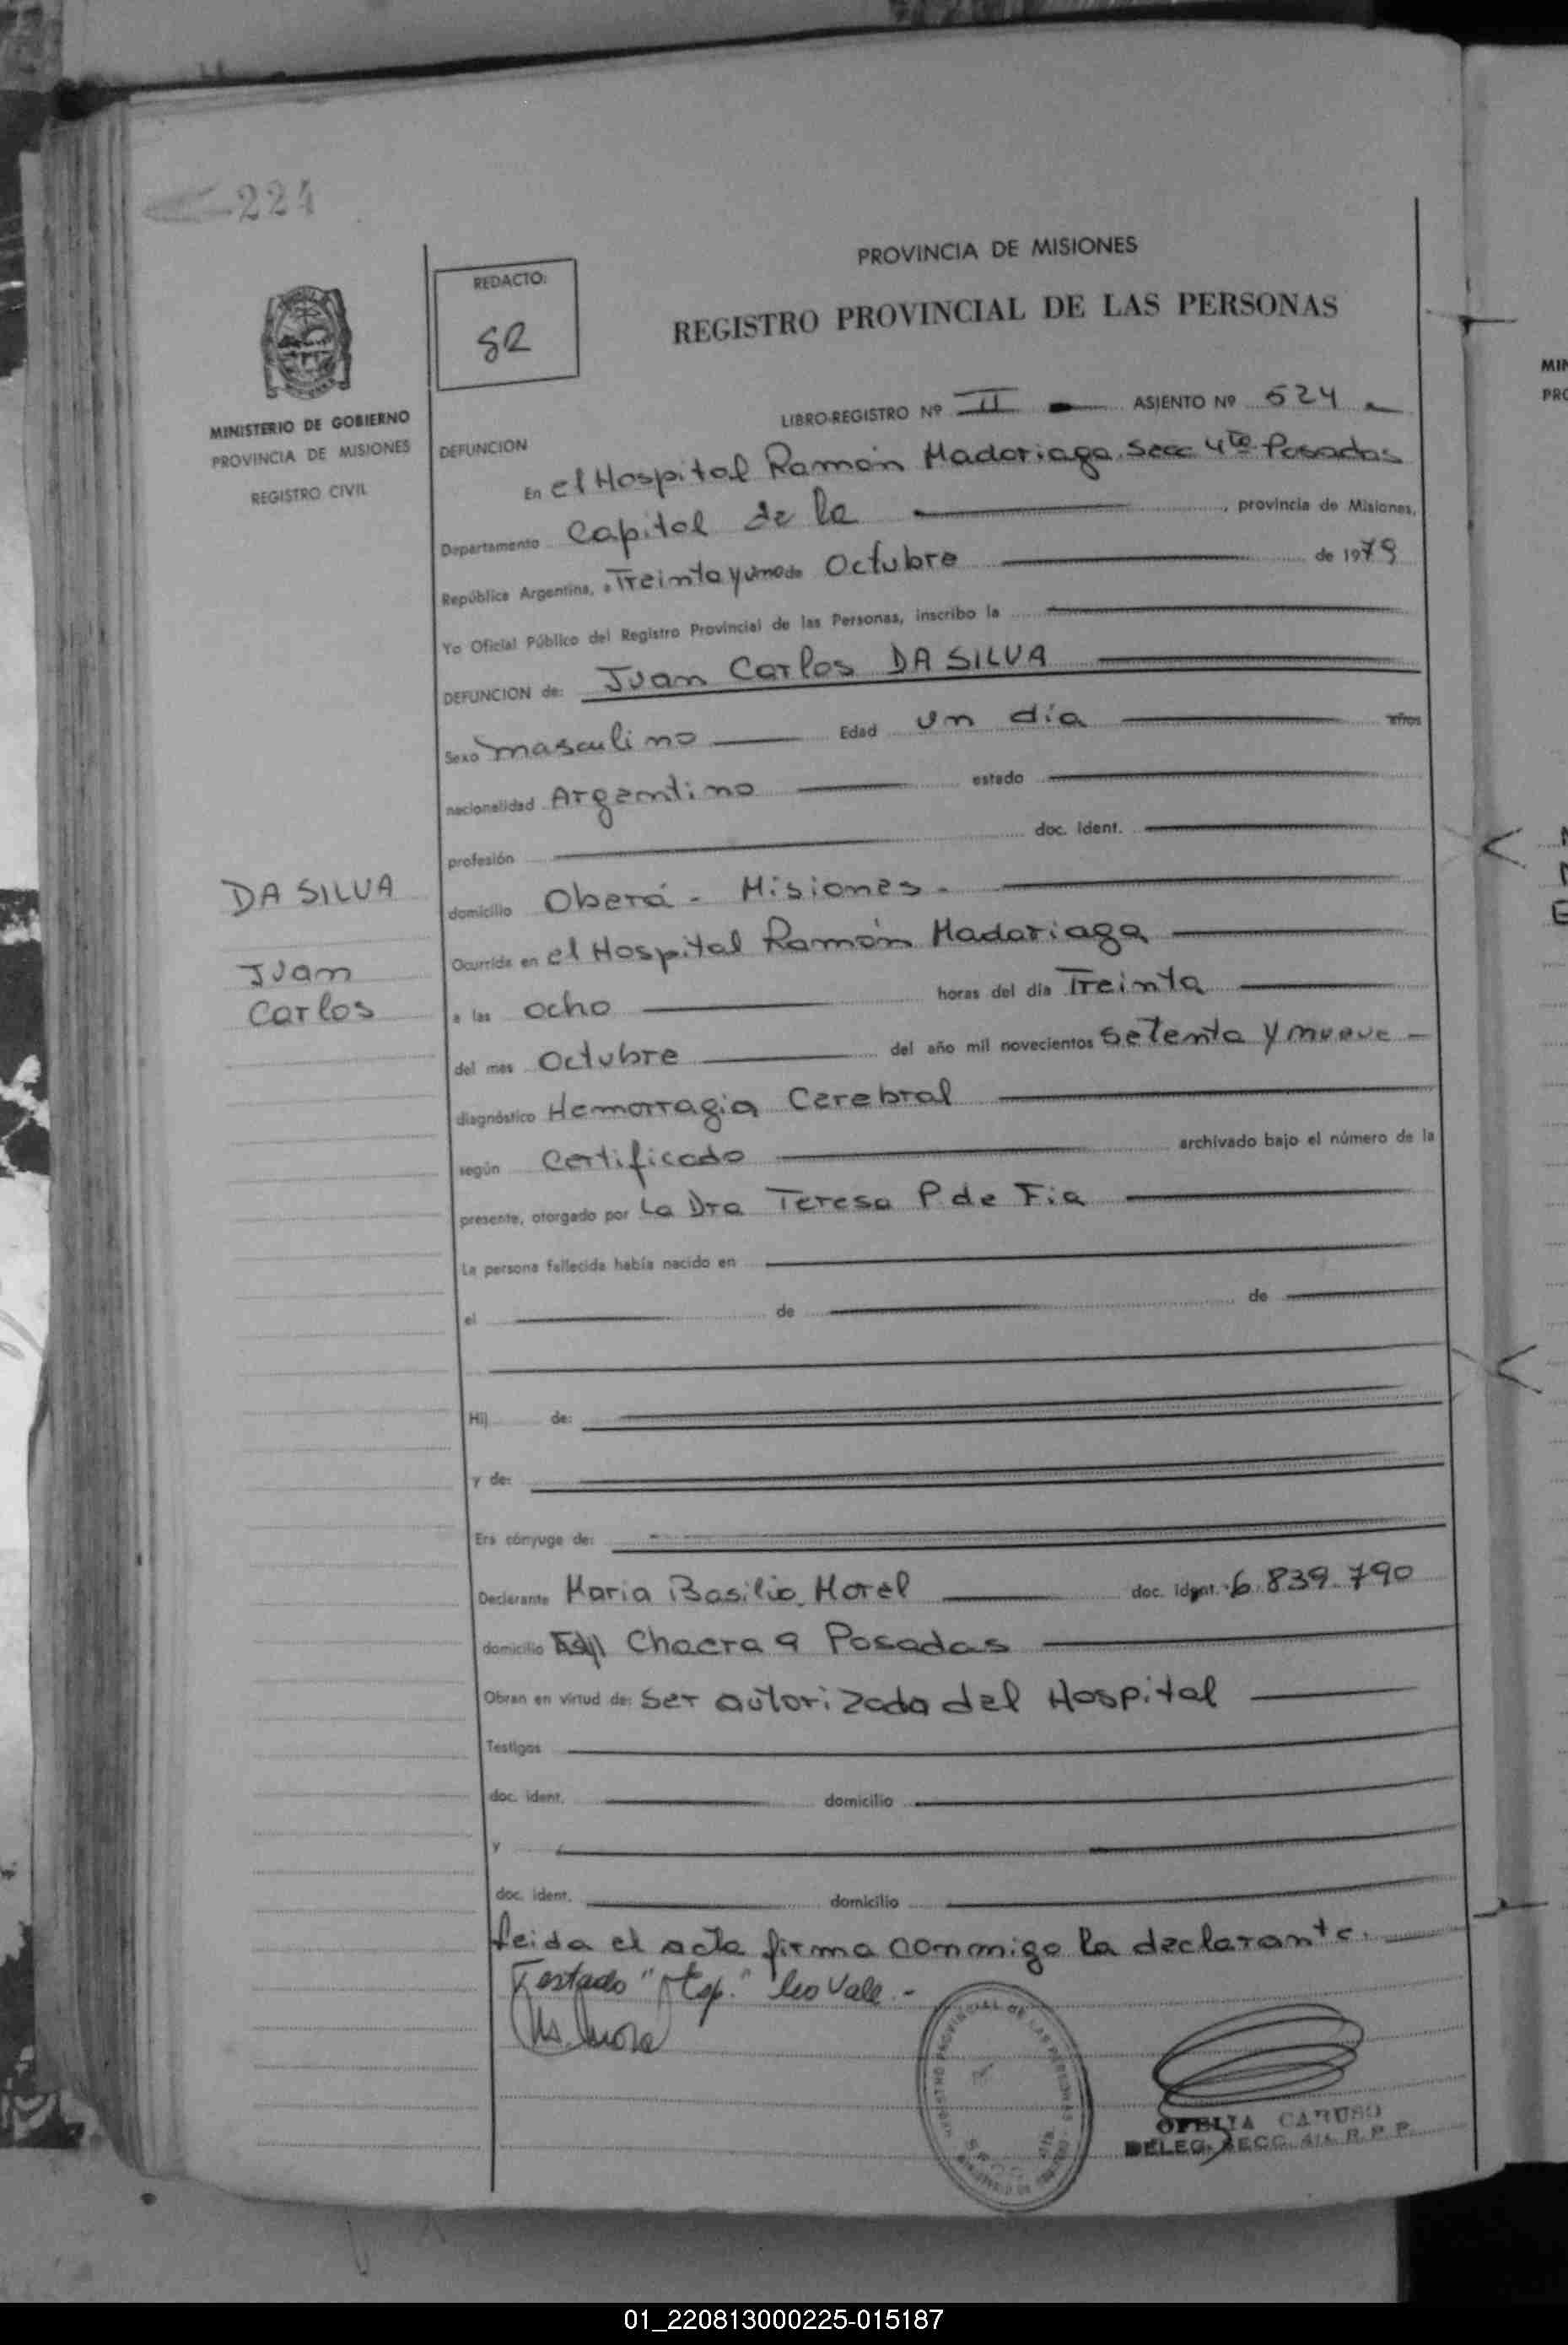 224
PROVINCIA DE MISIONES
REDACTO:
SR
REGISTRO PROVINCIAL DE LAS PERSONAS
MINISTERIO DE GOBIERNO
PROVINCIA DE MISIONES
REGISTRO CIVIL
LIBRO-REGISTRO Nº II ASIENTO Nº 524
DEFUNCION
En el Hospital Ramón Madariaga. Secc 4ta Posadas
Departamento Capital de la , provincia de Misiones,
República Argentina, a Treinta y uno de Octubre de 1979
Yo Oficial Público del Registro Provincial de las Personas, inscribo la
DEFUNCION de: Juan Carlos DA SILVA
Sexo masculino Edad un día años
nacionalidad Argentino estado
profesión doc. ident.
DA SILVA
domicilio Oberá - Misiones -
Juan
Carlos
Ocurrida en el Hospital Ramón Madariaga
a las ocho horas del día Treinta
del mes Octubre del año mil novecientos setenta y nueve
diagnóstico Hemorragia Cerebral
según Certificado archivado bajo el número de la
presente, otorgado por La Dra Teresa P. de Fia
La persona fallecida había nacido en
el de de
Hij de:
y de:
Era cónyuge de:
Declarante Maria Basilia Morel doc. Ident. 6.839.790
domicilio Chacra 9 Posadas
Obran en virtud de: Ser autorizada del Hospital
Testigos
doc. ident. domicilio
y
doc. ident. domicilio
leida el acta firma conmigo la declarante.
Testado " Esp." No Vale.-
REGISTRO PROVINCIAL DE LAS PERSONAS
OFELIA CARUSO
DELEG. SECC. 4ta. R. P. P.
MIN
PRO
01_220813000225-015187